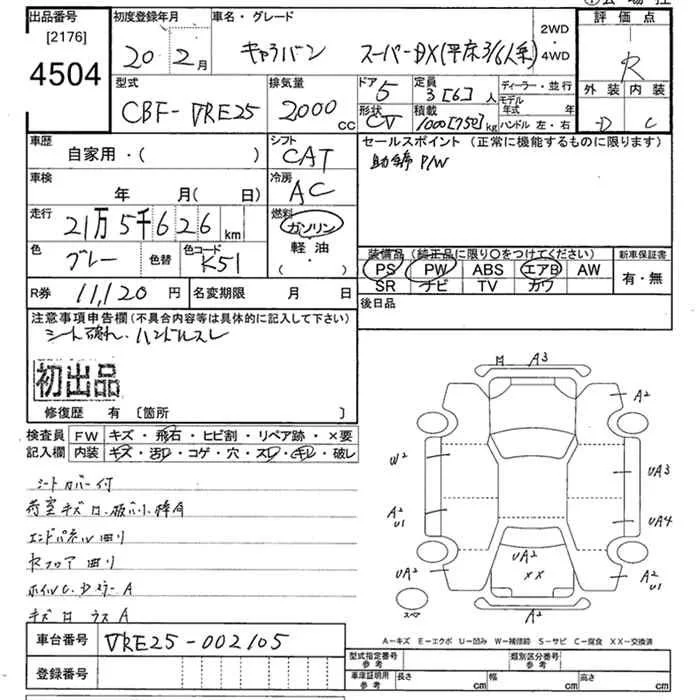 出品番号 初度登録年月 車名・グレード 評価点
[2176] 4504
20年2月 キャラバン スーパーDX(平床3/6人乗) 2WD 4WD R
型式 排気量 ドア 定員 ディーラー・並行 外装 内装
CBF-VRE25 2000cc 5 3[6]人 モデル年式 年
形状 CV 積載 1000[750]kg ハンドル 左・右 D C
車歴 シフト セールスポイント(正常に機能するものに限ります)
自家用・( ) CAT 助手席 P/W
車検 冷房
年 月(日) AC
走行 燃料
21万5千626km ガソリン
色 色替 色コード 軽油
グレー K51 (・)
装備品(純正品に限り○をつけてください) 新車保証書
PS PW ABS エアB AW 有・無
SR ナビ TV カワ
R券 11,120円 名変期限 月 日 後日品
注意事項申告欄(不具合内容等は具体的に記入して下さい)
シート破れ・ハンドルスレ
初出品
修復歴 有 [箇所 ]
検査員 FW キズ・飛石・ヒビ割・リペア跡・×要
記入欄 内装 キズ・汚れ・コゲ・穴・スレ・キレ・破レ
シートカバー付
エンドパネル曲り
M A3
A2
W2 UA3
A2 U1 UA4
UA2 UA2 A2 U1
XX
スペア A2
A-キズ E-エクボ U-凹み W-補修跡 S-サビ C-腐食 XX-交換済
車台番号 VRE25-002105
登録番号
型式指定番号 参考 類別区分番号 参考
車庫証明用 参考 長さ cm 幅 cm 高さ cm